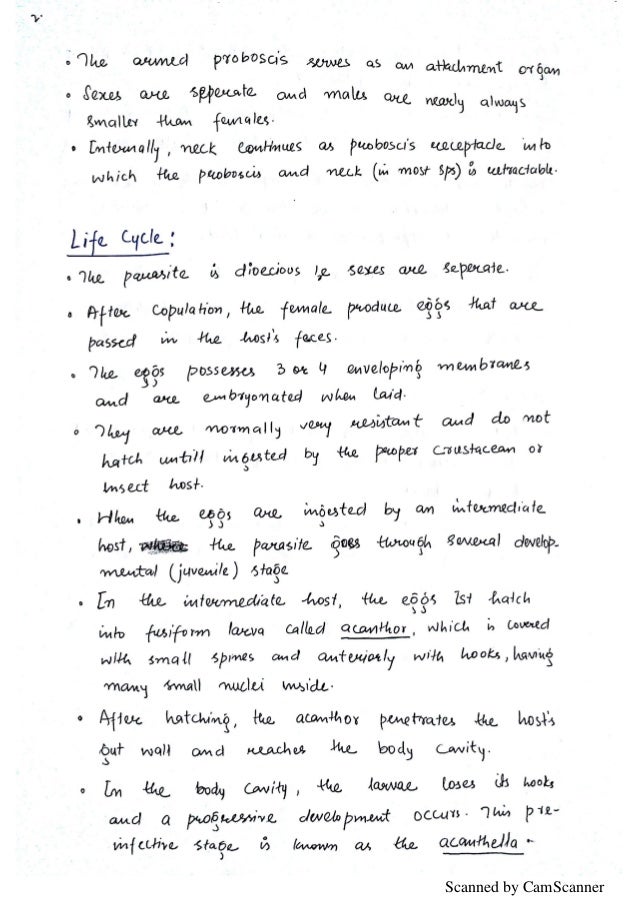 2.
• The armed proboscis serves as an attachment organ
• Sexes are seperate and males are nearly always
smaller than females.
• Internally, neck continues as proboscis receptacle into
which the proboscis and neck (in most sps) is retractable.
Life Cycle:
• The parasite is dioecious ie sexes are seperate.
• After copulation, the female produce eggs that are
passed in the host's faces.
• The eggs possesses 3 or 4 enveloping membranes
and are embryonated when laid.
• They are normally very resistant and do not
hatch untill ingested by the proper crustacean or
insect host.
• When the eggs are ingested by an intermediate
host, the parasite goes through several develop-
mental (juvenile) stage
• In the intermediate host, the eggs 1st hatch
into fusiform larva called acanthor, which is covered
with small spines and anteriorly with hooks, having
many small nuclei inside.
• After hatching, the acanthor penetrates the host's
gut wall and reaches the body cavity.
• In the body cavity, the larvae loses its hooks
and a progressive development occurs. This pre-
infective stage is known as the acanthella.
Scanned by CamScanner